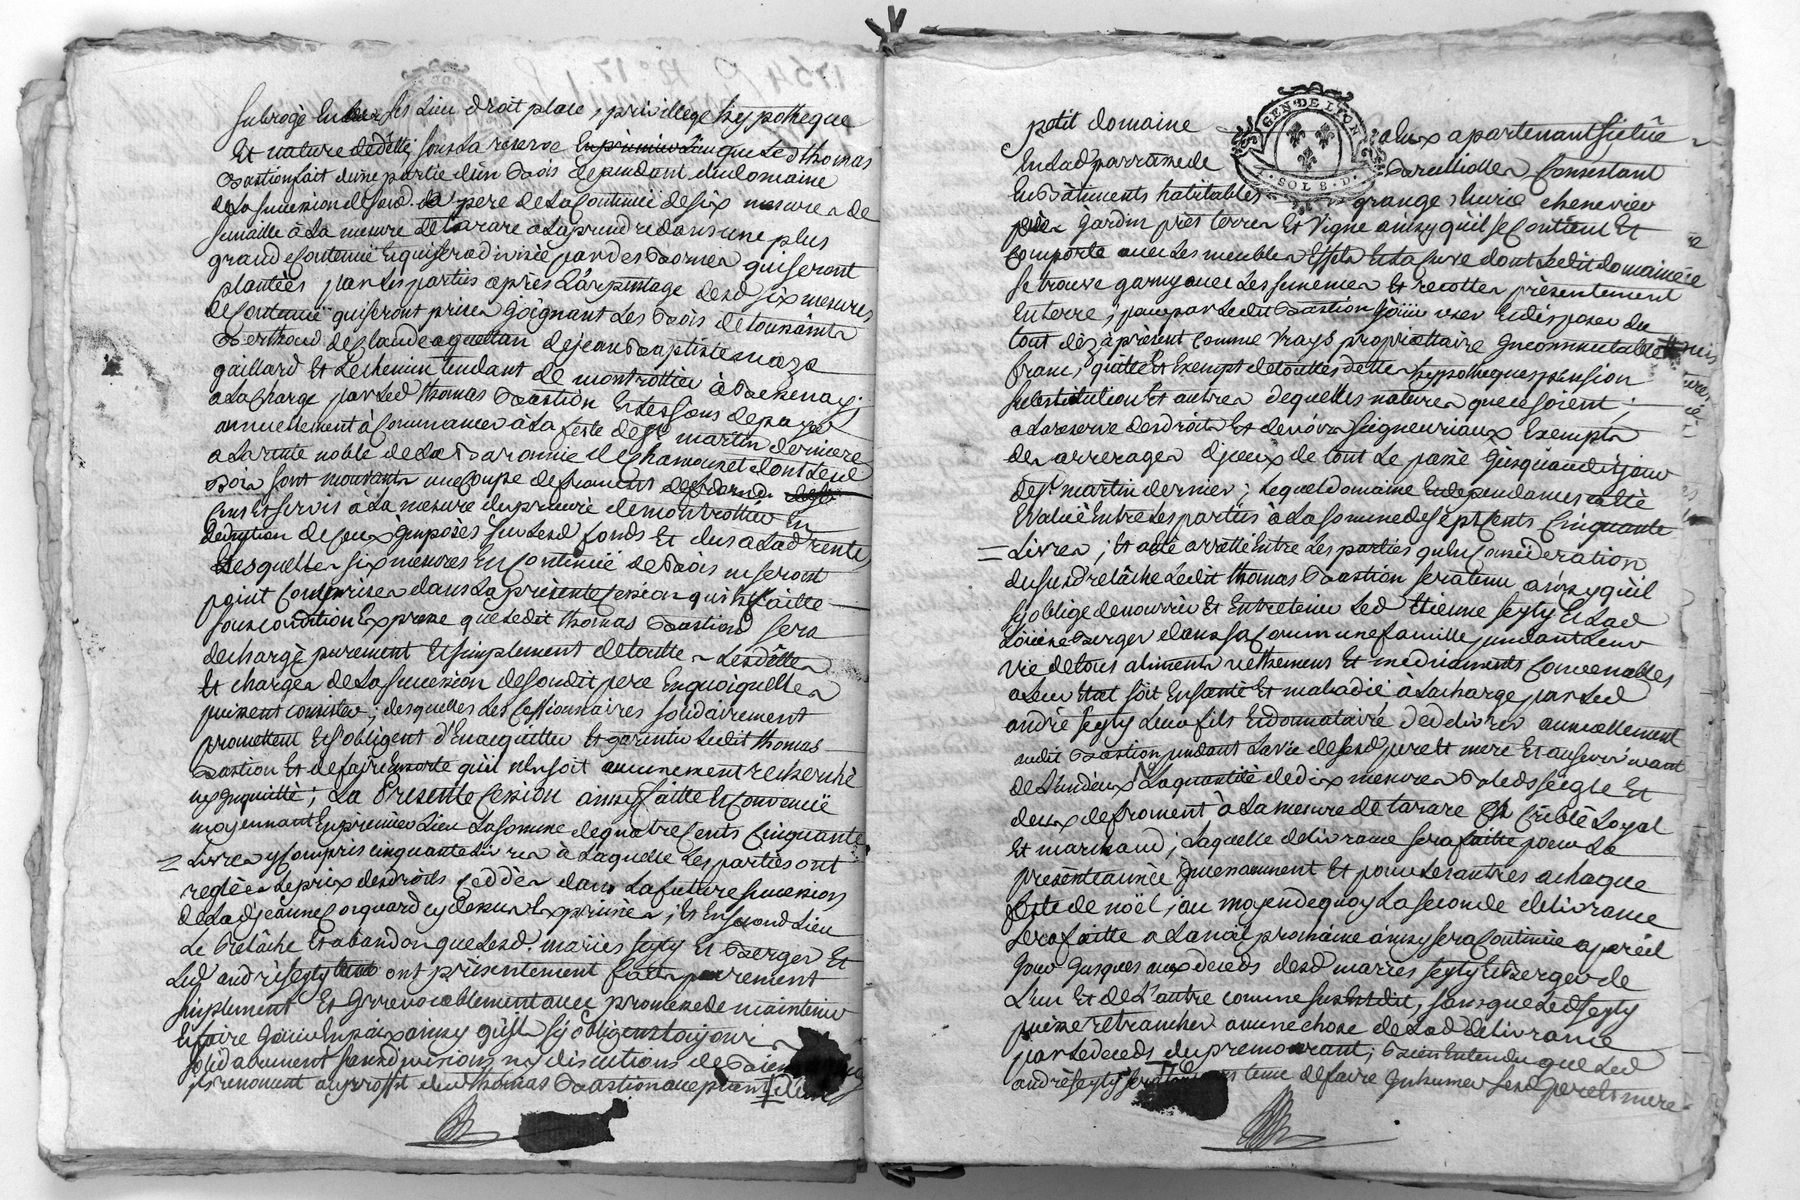 subrogé ses Lieu droit place, privillege hypotheque
Et nature dedétte, sous La reserve que Led thomas
Bastion fait d'une partie d'un Bois dependant du domaine
de La succession desond. pere de La Contenüe de six mesures de
semaille à La mesure de tarare a La prendre dans une plus
grande Contenüe Et qui sera divisée par des Bornes qui seront
plantées par Les parties après L'arpentage desd six mesures
de Contenüe qui seront prises joignant Les Bois de tousaints
Berthoud de Claude aguettan de jean Baptiste maza
gaillard Et Le chemin tendant de montrottier à Bessenay.
a La charge par Led thomas Bastion Et Les siens de payer
annuellement à Commancer à La feste de st martin derniere
a La rente noble de La Baronnie de Chamousset dont Lesd
Bois sont mouvants une Coupe de froment
Cens Et servis à La mesure du prieuré de montrottier En
deduction de Ceux imposés sur Lesd fonds Et dus a Lad rente
Lesquelles six mesures En Contenüe de Bois ne seront
point Comprises dans La présente Cession qui Est faitte
sous condition Expresse que Ledit thomas Bastion sera
dechargé purement Et simplement de toutte Les dettes
Et charges de La succession desondit pere En quoi quelles
puissent consister; desquelles Les Cessionnaires solidairement
promettent Et s'obligent d'En acquitter Et garentir Ledit thomas
Bastion Et de faire En sorte qu'il n'En soit aucunement recherché
ny inquietté; La Presente Cession ainsy faitte Et Convenüe
moyennant En premier Lieu La somme de quatre Cents Cinquante
= Livres y Compris cinquante Livres à Laquelle Les parties ont
reglée Le prix des droits Ceddés dans La future succession
de Lad jeanne Corquard cy dessus Exprimés; Et En second Lieu
Le Relâche Et abandon que Lesd. mariés seyty Et Berger Et
Led andré seyty ont présentement fait purement
simplement Et irrevocablement avec promesse de maintenir
Et faire jouir En paix ainsy qu'ils s'y obligent toujours
solidairement sans division ny discution de Biens
ils renoncent au proffit dud thomas Bastion acceptant
petit domaine a Eux apartenant situé
En Lad parroisse de Consistant
En Bâtiments habitables grange Ecurie chenevier
jardin prés terres Et Vigne ainsy qu'il se Contient Et
Comporte avec Les meubles Effets Et La Cuve dont Ledit domaine
se trouve garny avec Les semences Et recoltes présentement
En terre, pour par Ledit Bastion joüir user Et disposer du
tout déz a présent comme vrays propriettaire incommutable
franc, quitte Et Exempt de touttes dettes hypotheques pension
substitution Et autres de quelles natures que ce soient;
a La reserve des droits Et devoirs seigneuriaux Exempts
des arrerages d'jceux de tout Le passé jusqu'audit jour
de st martin dernier; Lequel domaine Et dependances a Eté
Evalué Entre Les parties à La somme de sept Cents Cinquante
= Livres; Et a Eté arretté Entre Les parties qu'En Consideration
du susd relâche Ledit thomas Bastion sera tenu ainsy qu'il
s'y oblige de nourrir Et Entretenir Led Etienne seyty Et Lad
Berger dans sa Commune famille pendant Leur
vie de tous aliments vettements Et medicaments Convenables
a Leur Etat soit En santé Et maladie à La charge par Led
andré seyty Leur fils Et donnataire de delivrer annuellement
audit Bastion pendant La vie desesd pere Et mere Et au survivant
de L'un d'Eux La quantité de dix mesures Bled seigle Et
deux de froment à La mesure de tarare Criblé Loyal
Et marchand; Laquelle delivrance sera faitte pour La
présente année incessament Et pour Les autres a chaque
feste de noël, au moyen de quoy La seconde delivrance
sera faitte a La noël prochaine ainsy sera Continüe a pareil
jour jusques aux deceds desd mariés seyty Et Berger de
L'un Et de L'autre comme sus Est dit, sans que Led seyty
puisse retrancher aucune chose de Lad delivrance
par Le deceds du premourant; Bien Entendu que Led
andré seyty sera tenu de faire inhumer sesd pere Et mere
GEN. DE LYON
SOLS. D.